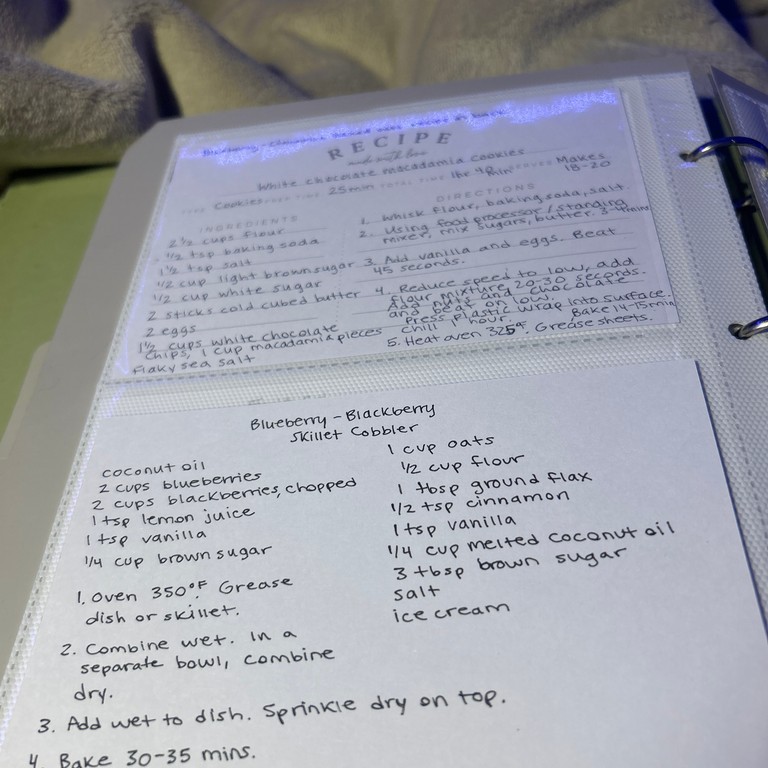 RECIPE
and with love
White chocolate macadamia cookies
Cookies 25min TOTAL TIME 1hr Makes 18-20
INGREDIENTS
2½ cups flour
½ tsp baking soda
1½ tsp salt
½ cup light brown sugar
½ cup white sugar
2 sticks cold cubed butter
2 eggs
1½ cups white chocolate
chips, 1 cup macadamia pieces
flaky sea salt
DIRECTIONS
1. Whisk flour, baking soda, salt.
2. Using food processor / standing
mixer, mix sugars, butter. 3-4mins
3. Add vanilla and eggs. Beat
45 seconds.
4. Reduce speed to low, add
flour mixture 20-30 seconds.
Add nuts and chocolate
and beat on low.
Press plastic wrap into surface.
Chill 1 hour. Bake 14-15min
5. Heat oven 325°F. Grease sheets.
Blueberry - Blackberry
Skillet Cobbler
coconut oil
2 cups blueberries
2 cups blackberries, chopped
1 tsp lemon juice
1 tsp vanilla
1/4 cup brown sugar
1 cup oats
1/2 cup flour
1 tbsp ground flax
1/2 tsp cinnamon
1 tsp vanilla
1/4 cup melted coconut oil
3 tbsp brown sugar
salt
ice cream
1. Oven 350°F. Grease
dish or skillet.
2. Combine wet. In a
separate bowl, combine
dry.
3. Add wet to dish. Sprinkle dry on top.
4. Bake 30-35 mins.